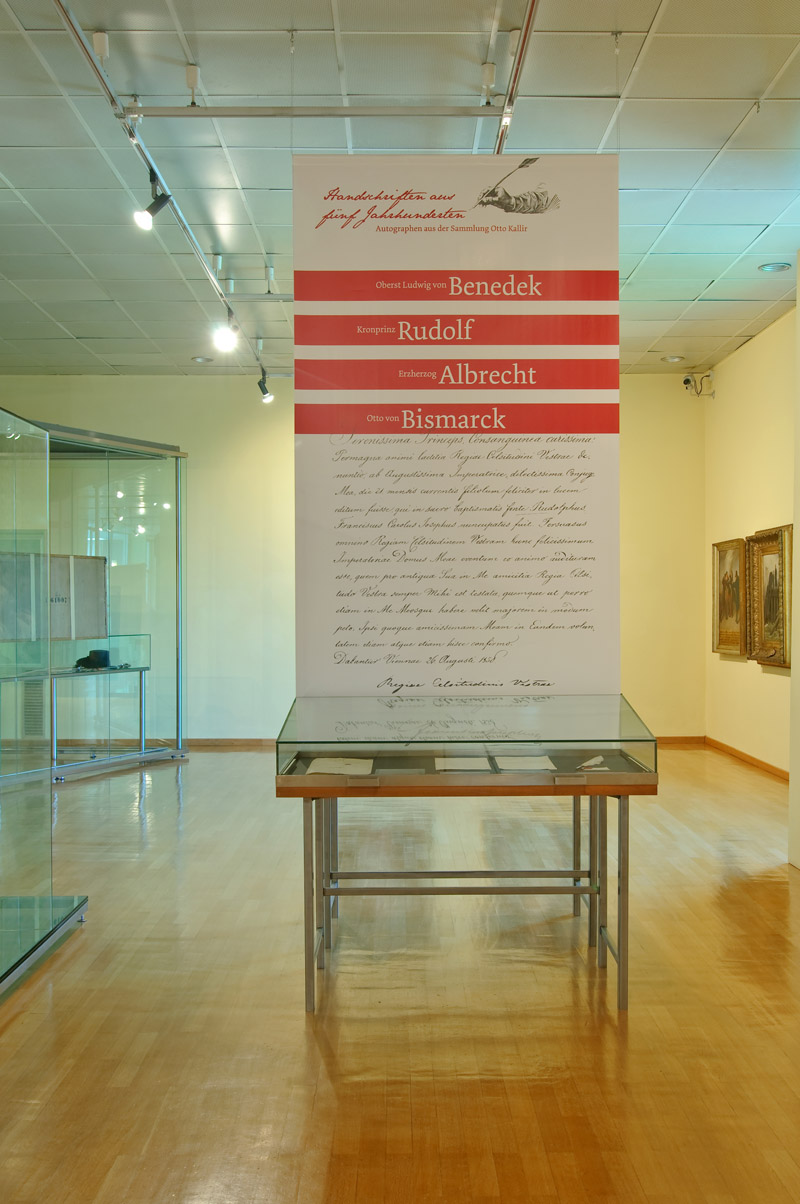 Handschriften aus
fünf Jahrhunderten
Autographen aus der Sammlung Otto Kallir
Oberst Ludwig von Benedek
Kronprinz Rudolf
Erzherzog Albrecht
Otto von Bismarck
Serenissima Princeps, Consanguinea carissima.
Permagna animi laetitia Regiae Celsitudini Vestrae
ab Augustissima Imperatrice, delectissima Conjuge
Mea, die 21 mensis currentis filiolum feliciter in lucem
editum fuisse qui in sacro baptismatis fonte Rudolphus
Franciscus Carolus Josephus nuncupatus fuit. Persuasus
omnino Regiam Celsitudinem Vestram hunc felicissimum
Imperatoriae Domus Meae eventum eo animo
esse, quem pro antiqua Sua in Me amicitia Regia Celsi,
tudo Vestra semper Mihi est testata, quamque ut porro
etiam in Me Meosque habere velit majorem in modum
peto. Ipse quoque amicissimam Meam in Eandem volun,
tatem etiam atque etiam hisce confirmo.
Dabantur Viennae 26 Augusti 1858
Regiae Celsitudinis Vestrae